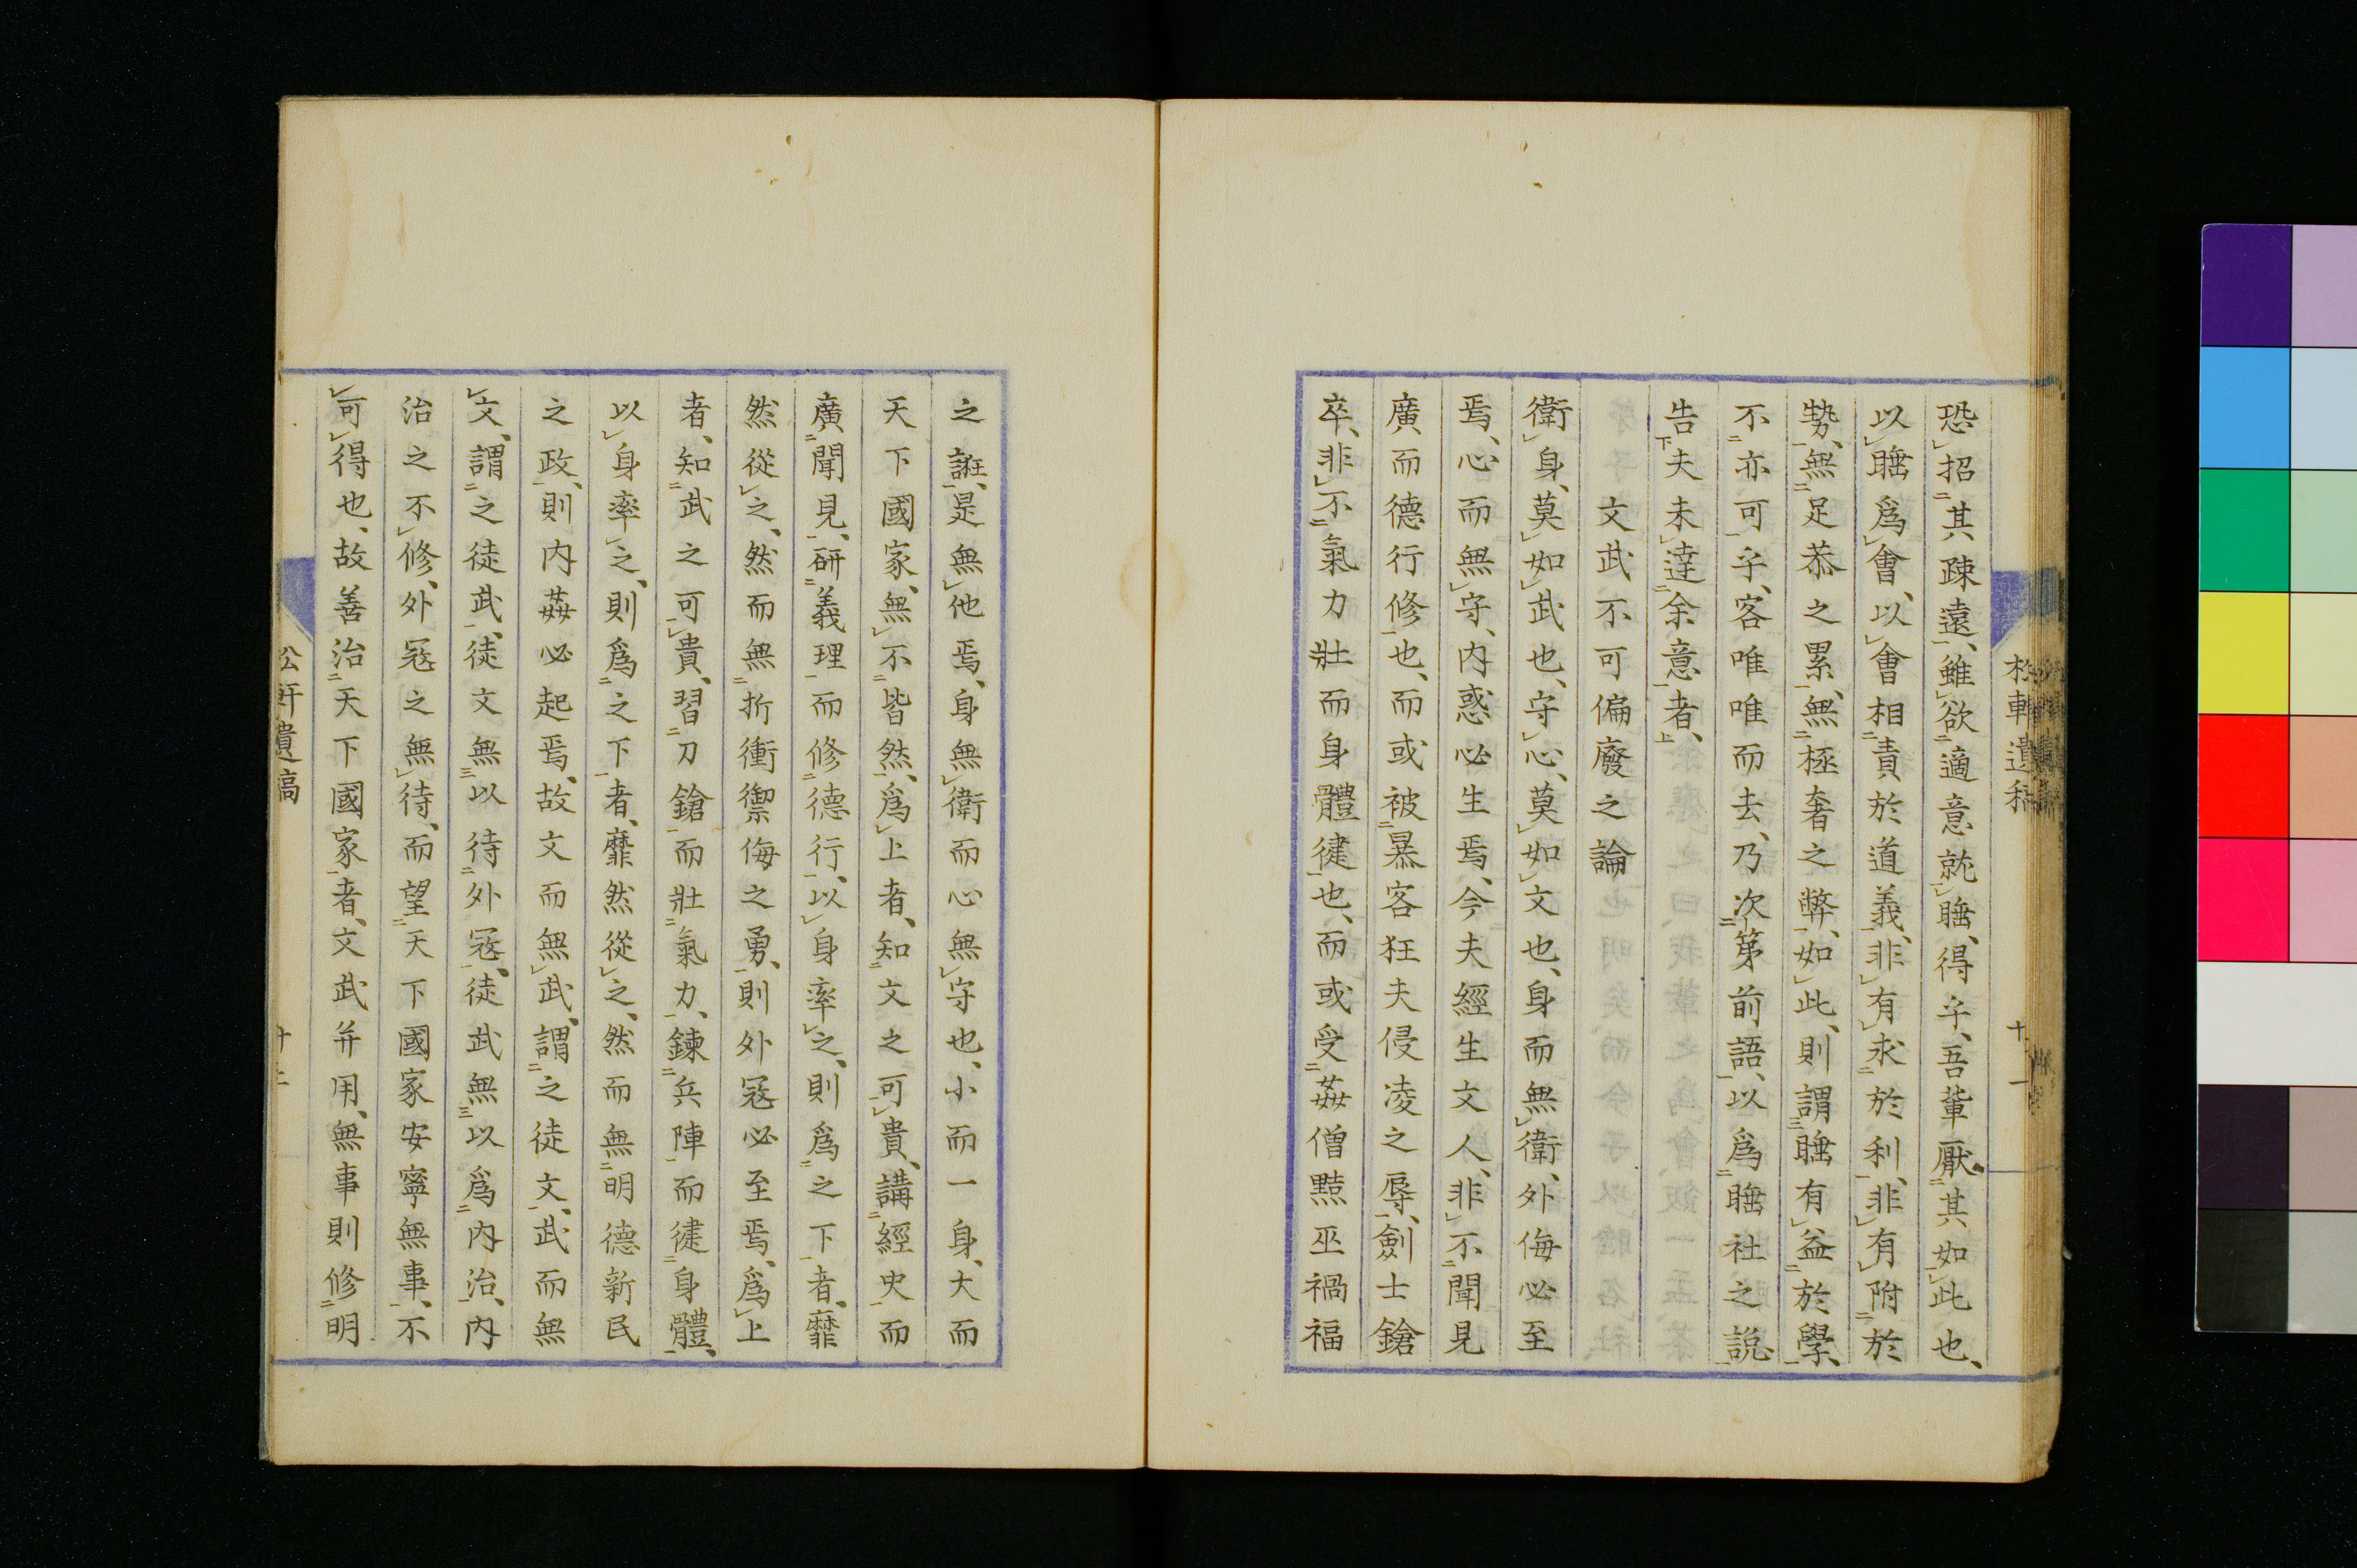 恐招其疎遠、雖欲適意就睡、得乎、吾輩厭其如此也、
以睡爲會、以會相責於道義、非有求於利、非有附於
勢、無足恭之累、無極奢之弊、如此、則謂睡有益於學、
不亦可乎、客唯唯而去、乃次第前語、以爲睡社之説
告夫未達余意者、
文武不可偏廢之論
衛身、莫如武也、守心、莫如文也、身而無衛、外侮必至
焉、心而無守、内惑必生焉、今夫經生文人、非不聞見
廣而德行修也、而或被暴客狂夫侵凌之辱、劍士鎗
卒、非不氣力壯而身體健也、而或受姦僧黠巫禍福
之誑、是無他焉、身無衛而心無守也、小而一身、大而
天下國家、無不皆然、爲上者、知文之可貴、講經史而
廣聞見、研義理而修德行、以身率之、則爲之下者、靡
然從之、然而無折衝禦侮之勇、則外冦必至焉、爲上
者、知武之可貴、習刀鎗而壯氣力、鍊兵陣而健身體、
以身率之、則爲之下者、靡然從之、然而無明德新民
之政、則内姦必起焉、故文而無武、謂之徒文、武而無
文、謂之徒武、徒文無以待外冦、徒武無以爲内治、内
治之不修、外冦之無待、而望天下國家安寧無事、不
可得也、故善治天下國家者、文武并用、無事則修明
松軒遺稿